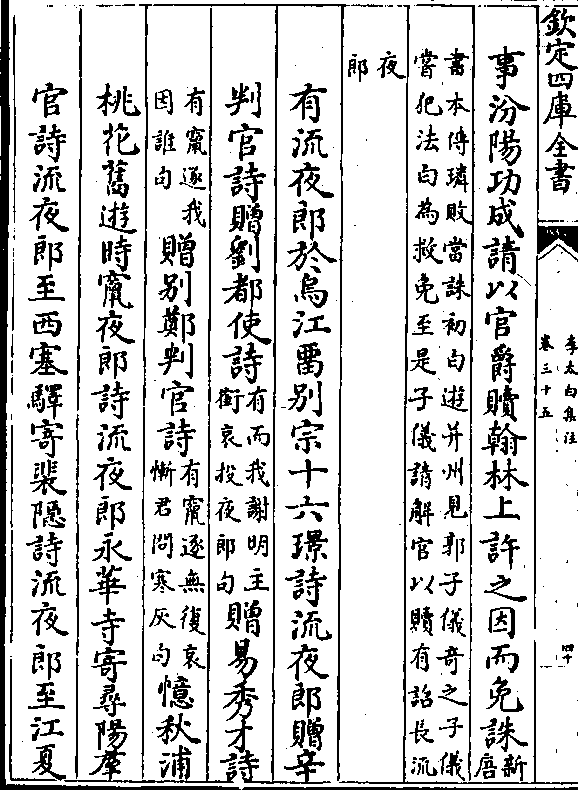 欽定四庫全書
李太白集注
卷三十五
四十
事汾陽功成請以官爵贖翰林上許之因而免誅新
唐
書本傳璘敗當誅初白遊并州見郭子儀奇之子儀
嘗犯法白為救免至是子儀請解官以贖有詔長流
夜
郎
有流夜郎於烏江留别宗十六璟詩流夜郎贈辛
判官詩贈劉都使詩有而我謝明主
銜哀投夜郎句贈易秀才詩
有竄逐我
因誰句贈别鄭判官詩有竄逐無復哀
慚君問寒灰句憶秋浦
桃花舊遊時竄夜郎詩流夜郎永華寺寄尋陽羣
官詩流夜郎至西塞驛寄裴隱詩流夜郎至江夏